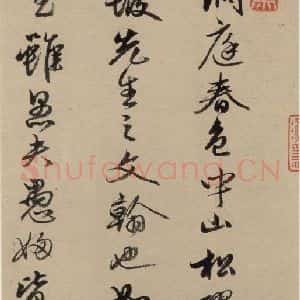 洞庭春色中山松醪
坡先生之文翰也
雖愚夫愚婦皆
Shufawang.CN